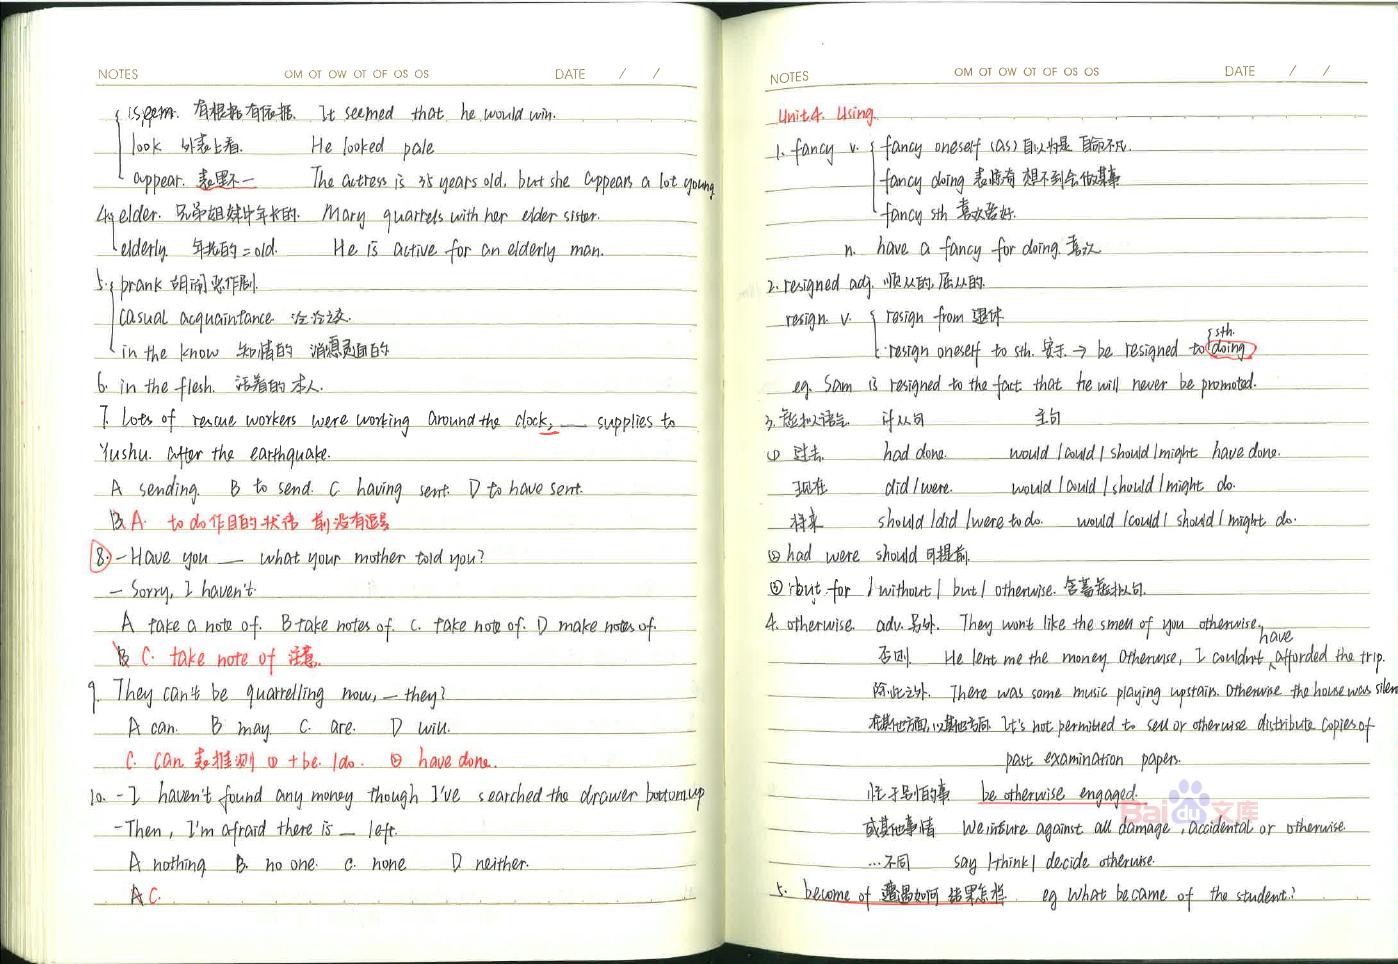 NOTES OM OT OW OT OF OS OS DATE / /
seem. 有根据有依据. It seemed that he would win.
look 外表上看. He looked pale
appear. 表里不一 The actress is 35 years old, but she appears a lot young
4. elder. 兄弟姐妹中年长的. Mary quarrels with her elder sister.
elderly 年老的=old. He is active for an elderly man.
5. prank 胡闹恶作剧.
casual acquaintance. 泛泛之交.
in the know 知情的 消息灵通的
6. in the flesh. 活着的 本人.
7. Lots of rescue workers were working around the clock, __ supplies to
Yushu. after the earthquake.
A sending. B to send. C having sent. D to have sent.
B A. to do 作目的状语 前没有逗号
8. -Have you __ what your mother told you?
- Sorry, I haven't.
A take a note of. B take notes of. C. take note of. D make notes of.
B C. take note of 注意.
9. They can't be quarrelling now, __ they?
A can. B may C. are. D will.
C. can 表推测 ① +be./do. ② have done.
10. -I haven't found any money though I've searched the drawer bottom up
-Then, I'm afraid there is __ left.
A nothing B. no one. C. none D neither.
A C.
NOTES OM OT OW OT OF OS OS DATE / /
Unit 4. Using.
1. fancy v. fancy oneself (as) 自以为是 自命不凡.
fancy doing 表惊奇 想不到会做某事
fancy sth 喜欢爱好.
n. have a fancy for doing. 喜欢
2. resigned adj. 顺从的. 屈从的.
resign. v. resign from 退休
resign oneself to sth. 安于. → be resigned to sth. doing
eg. Sam is resigned to the fact that he will never be promoted.
3. 虚拟语气. if 从句 主句
① 过去. had done. would/could/should/might have done.
现在 did/were. would/could/should/might do.
将来 should/did/were to do. would/could/should/might do.
② had were should 可提前.
③ but for /without/ but/ otherwise. 含蓄虚拟句.
4. otherwise. adv. 另外. They won't like the smell of you otherwise.
否则. He lent me the money. Otherwise, I couldn't have afforded the trip.
除此之外. There was some music playing upstairs. Otherwise the house was silen
在其他方面, 以其他方面. It's not permitted to sell or otherwise distribute copies of
past examination papers.
忙于另外的事 be otherwise engaged.
或其他事情 We insure against all damage, accidental or otherwise.
...不同 say/think/decide otherwise.
5. become of 遭遇如何 结果怎样. eg What became of the student?
Baidu文库